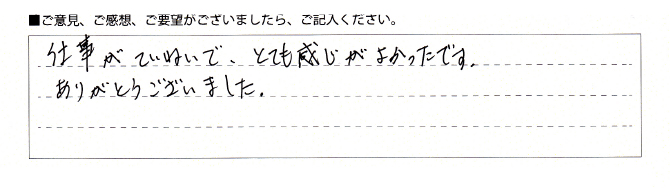 ■ご意見、ご感想、ご要望がございましたら、ご記入ください。
仕事がていねいで、とても感じがよかったです。
ありがとうございました。